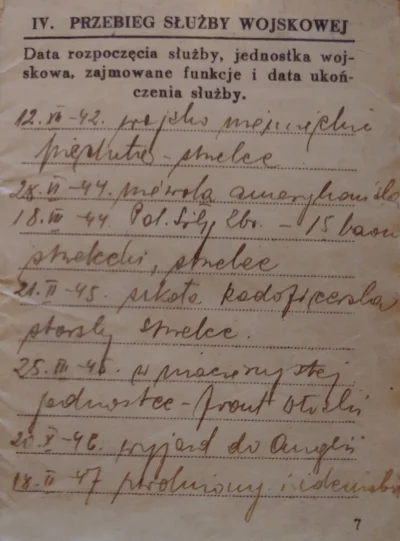 IV. PRZEBIEG SŁUŻBY WOJSKOWEJ
Data rozpoczęcia służby, jednostka woj-
skowa, zajmowane funkcje i data ukoń-
czenia służby.
12. -42. wojsko niemieckie
piechota - strzelec
28. VI -44. niewola amerykańska
18. -44 Pol. Siły Zbr. - 15 baon
strzelecki, strzelec
21. II -45. szkoła Podoficerska
starszy strzelec.
25. -45. w macierzystej
jednostce - front
20. X -46. wyjazd do Anglii
18. II -47 zwolniony
7